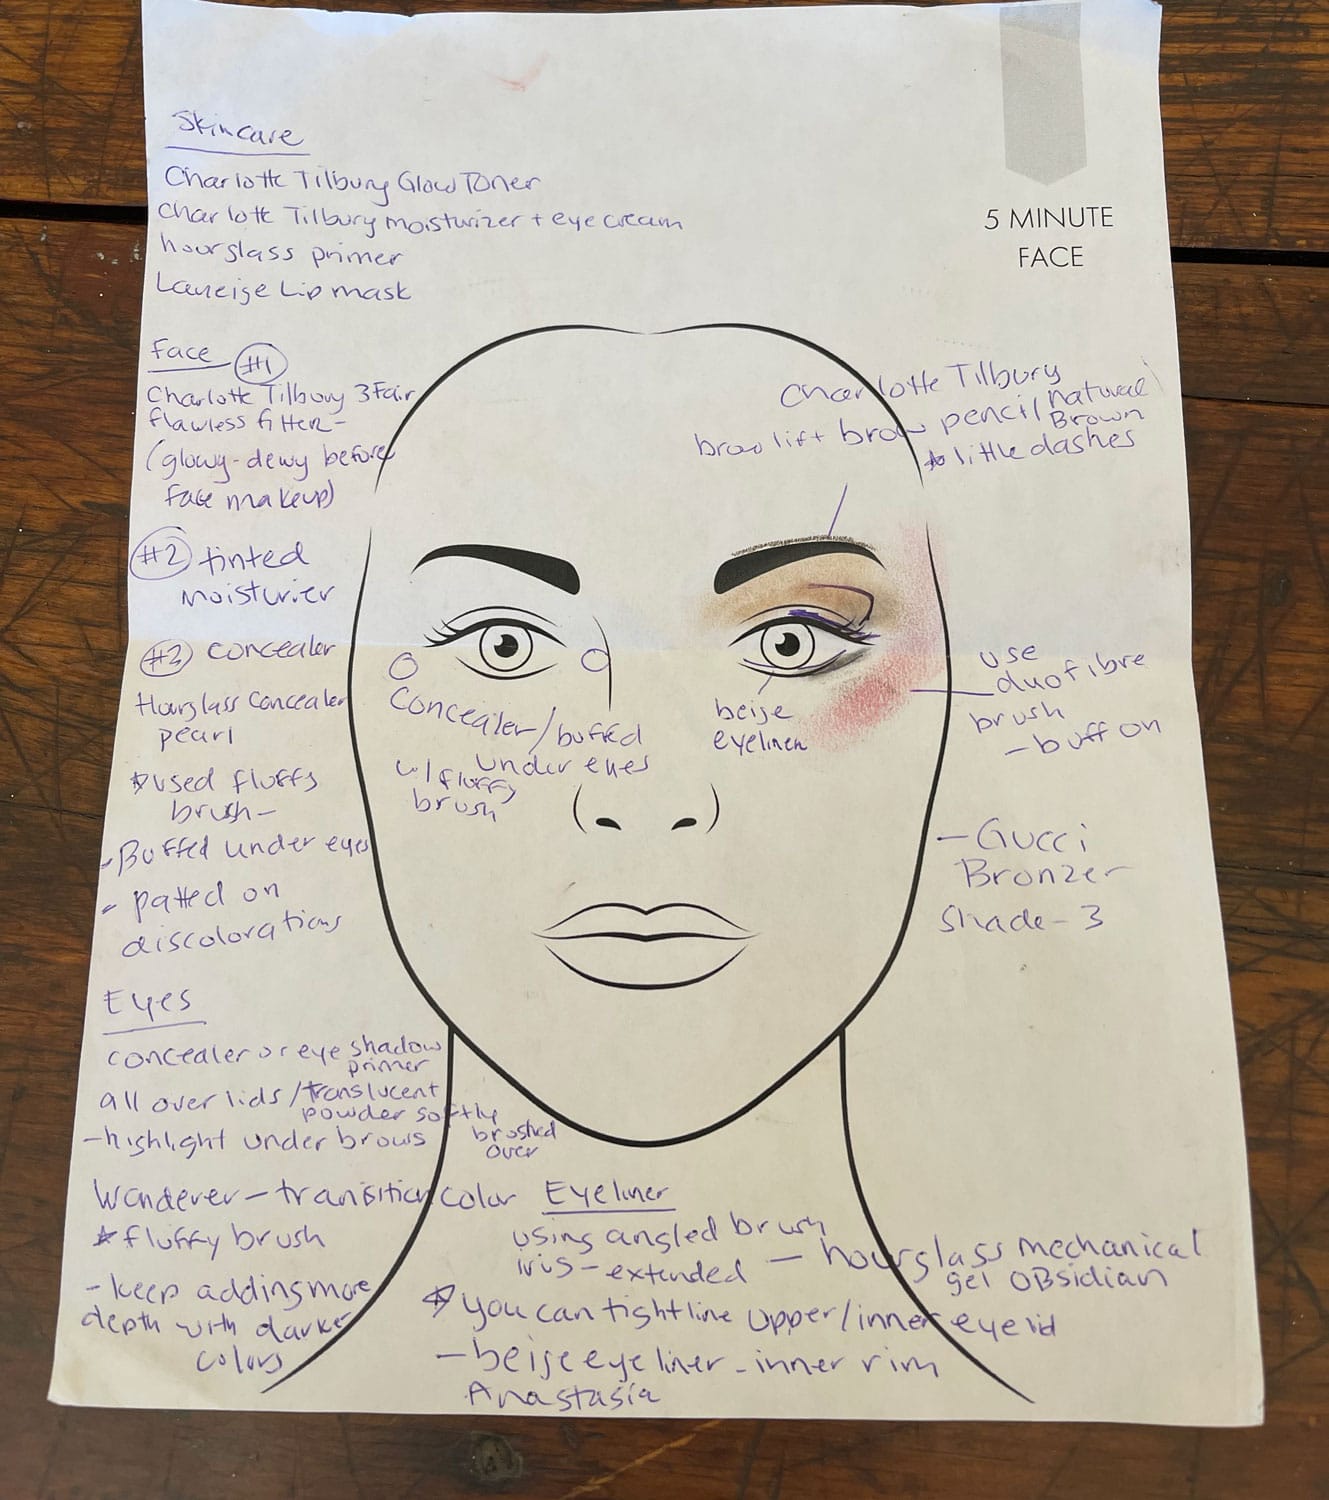 Skincare
Charlotte Tilbury Glow Toner
Charlotte Tilbury moisturizer + eye cream
hourglass primer
Laneige Lip mask
5 MINUTE
FACE
Face #1
Charlotte Tilbury 3 Fair
flawless filter -
(glowy-dewy before
face makeup)
#2 tinted
moisturier
#3 concealer
Hourglass concealer
pearl
☆ used fluffy
brush -
- Buffed under eyes
- patted on
discolorations
Charlotte Tilbury
brow lift brow pencil / natural
Brown
☆ little dashes
Concealer / buffed
under eyes
w/ fluffy
brush
beige
eyeliner
use
duo fibre
brush
- buff on
- Gucci
Bronzer
Shade - 3
Eyes
concealer or eye shadow
primer
all over lids / translucent
powder softly
brushed
over
- highlight under brows
Wanderer - transition color
☆ fluffy brush
- keep adding more
depth with darker
colors
Eyeliner
using angled brush
iris - extended - hourglass mechanical
gel OBsidian
☆ you can tightline upper / inner eyelid
- beige eyeliner - inner rim
Anastasia